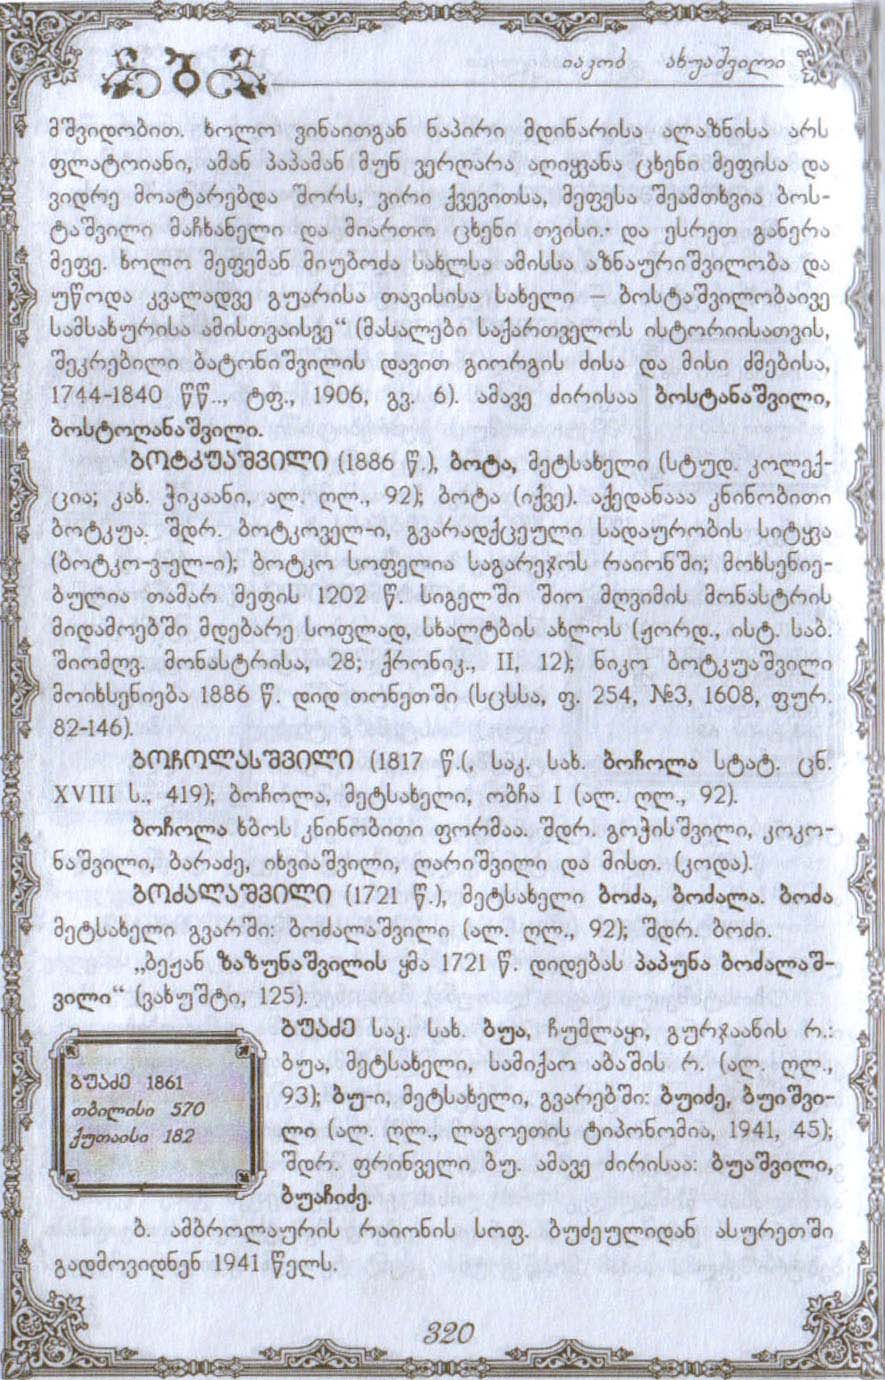 ბ
იაკობ ახუაშვილი
მშვიდობით. ხოლო ვინაითგან ნაპირი მდინარისა ალაზნისა არს
ფლატოიანი, ამან პაპამან მუნ ვერღარა აღიყვანა ცხენი მეფისა და
ვიდრე მოატარებდა შორს, ვირი ქვევითსა, მეფესა შეამთხვია ბოს-
ტაშვილი მაჩხანელი და მიართო ცხენი თვისი.- და ესრეთ განერა
მეფე. ხოლო მეფემან მიუბოძა სახლსა ამისსა აზნაურიშვილობა და
უწოდა კვალადვე გუარისა თავისისა სახელი – ბოსტაშვილობაივე
სამსახურისა ამისთვაისვე“ (მასალები საქართველოს ისტორიისათვის,
შეკრებილი ბატონიშვილის დავით გიორგის ძისა და მისი ძმებისა,
1744-1840 წწ.., ტფ., 1906, გვ. 6). ამავე ძირისაა ბოსტანაშვილი,
ბოსტოღანაშვილი.
ბოტკუაშვილი (1886 წ.), ბოტა, მეტსახელი (სტუდ. კოლექ-
ცია; კახ. ჭიკაანი, ალ. ღლ., 92); ბოტა (იქვე). აქედანააა კნინობითი
ბოტკუა. შდრ. ბოტკოველ-ი, გვარადქცეული სადაურობის სიტყვა
(ბოტკო-ვ-ელ-ი); ბოტკო სოფელია საგარეჯოს რაიონში; მოხსენიე-
ბულია თამარ მეფის 1202 წ. სიგელში შიო მღვიმის მონასტრის
მიდამოებში მდებარე სოფლად, სხალტბის ახლოს (ჟორდ., ისტ. საბ.
შიომღვ. მონასტრისა, 28; ქრონიკ., II, 12); ნიკო ბოტკუაშვილი
მოიხსენიება 1886 წ. დიდ თონეთში (სცსსა, ფ. 254, №3, 1608, ფურ.
82-146).
ბოჩოლასშვილი (1817 წ.(, საკ. სახ. ბოჩოლა სტატ. ცნ.
XVIII ს., 419); ბოჩოლა, მეტსახელი, ობჩა I (ალ. ღლ., 92).
ბოჩოლა ხბოს კნინობითი ფორმაა. შდრ. გოჭისშვილი, კოკო-
ნაშვილი, ბარაძე, იხვიაშვილი, ღარიშვილი და მისთ. (კოდა).
ბოძალაშვილი (1721 წ.), მეტსახელი ბოძა, ბოძალა. ბოძა
მეტსახელი გვარში: ბოძალაშვილი (ალ. ღლ., 92); შდრ. ბოძი.
„ბეჟან ზაზუნაშვილის ყმა 1721 წ. დიდებას პაპუნა ბოძალაშ-
ვილი“ (ვახუშტი, 125).
ბუაძე 1861
თბილისი 570
ქუთაისი 182
ბუაძე საკ. სახ. ბუა, ჩუმლაყი, გურჯაანის რ.:
ბუა, მეტსახელი, სამიქაო აბაშის რ. (ალ. ღლ.,
93); ბუ-ი, მეტსახელი, გვარებში: ბუიძე, ბუიშვი-
ლი (ალ. ღლ., ლაგოეთის ტიპონომია, 1941, 45);
შდრ. ფრინველი ბუ. ამავე ძირისაა: ბუაშვილი,
ბუაჩიძე.
ბ. ამბროლაურის რაიონის სოფ. ბუძეულიდან ასურეთში
გადმოვიდნენ 1941 წელს.
320